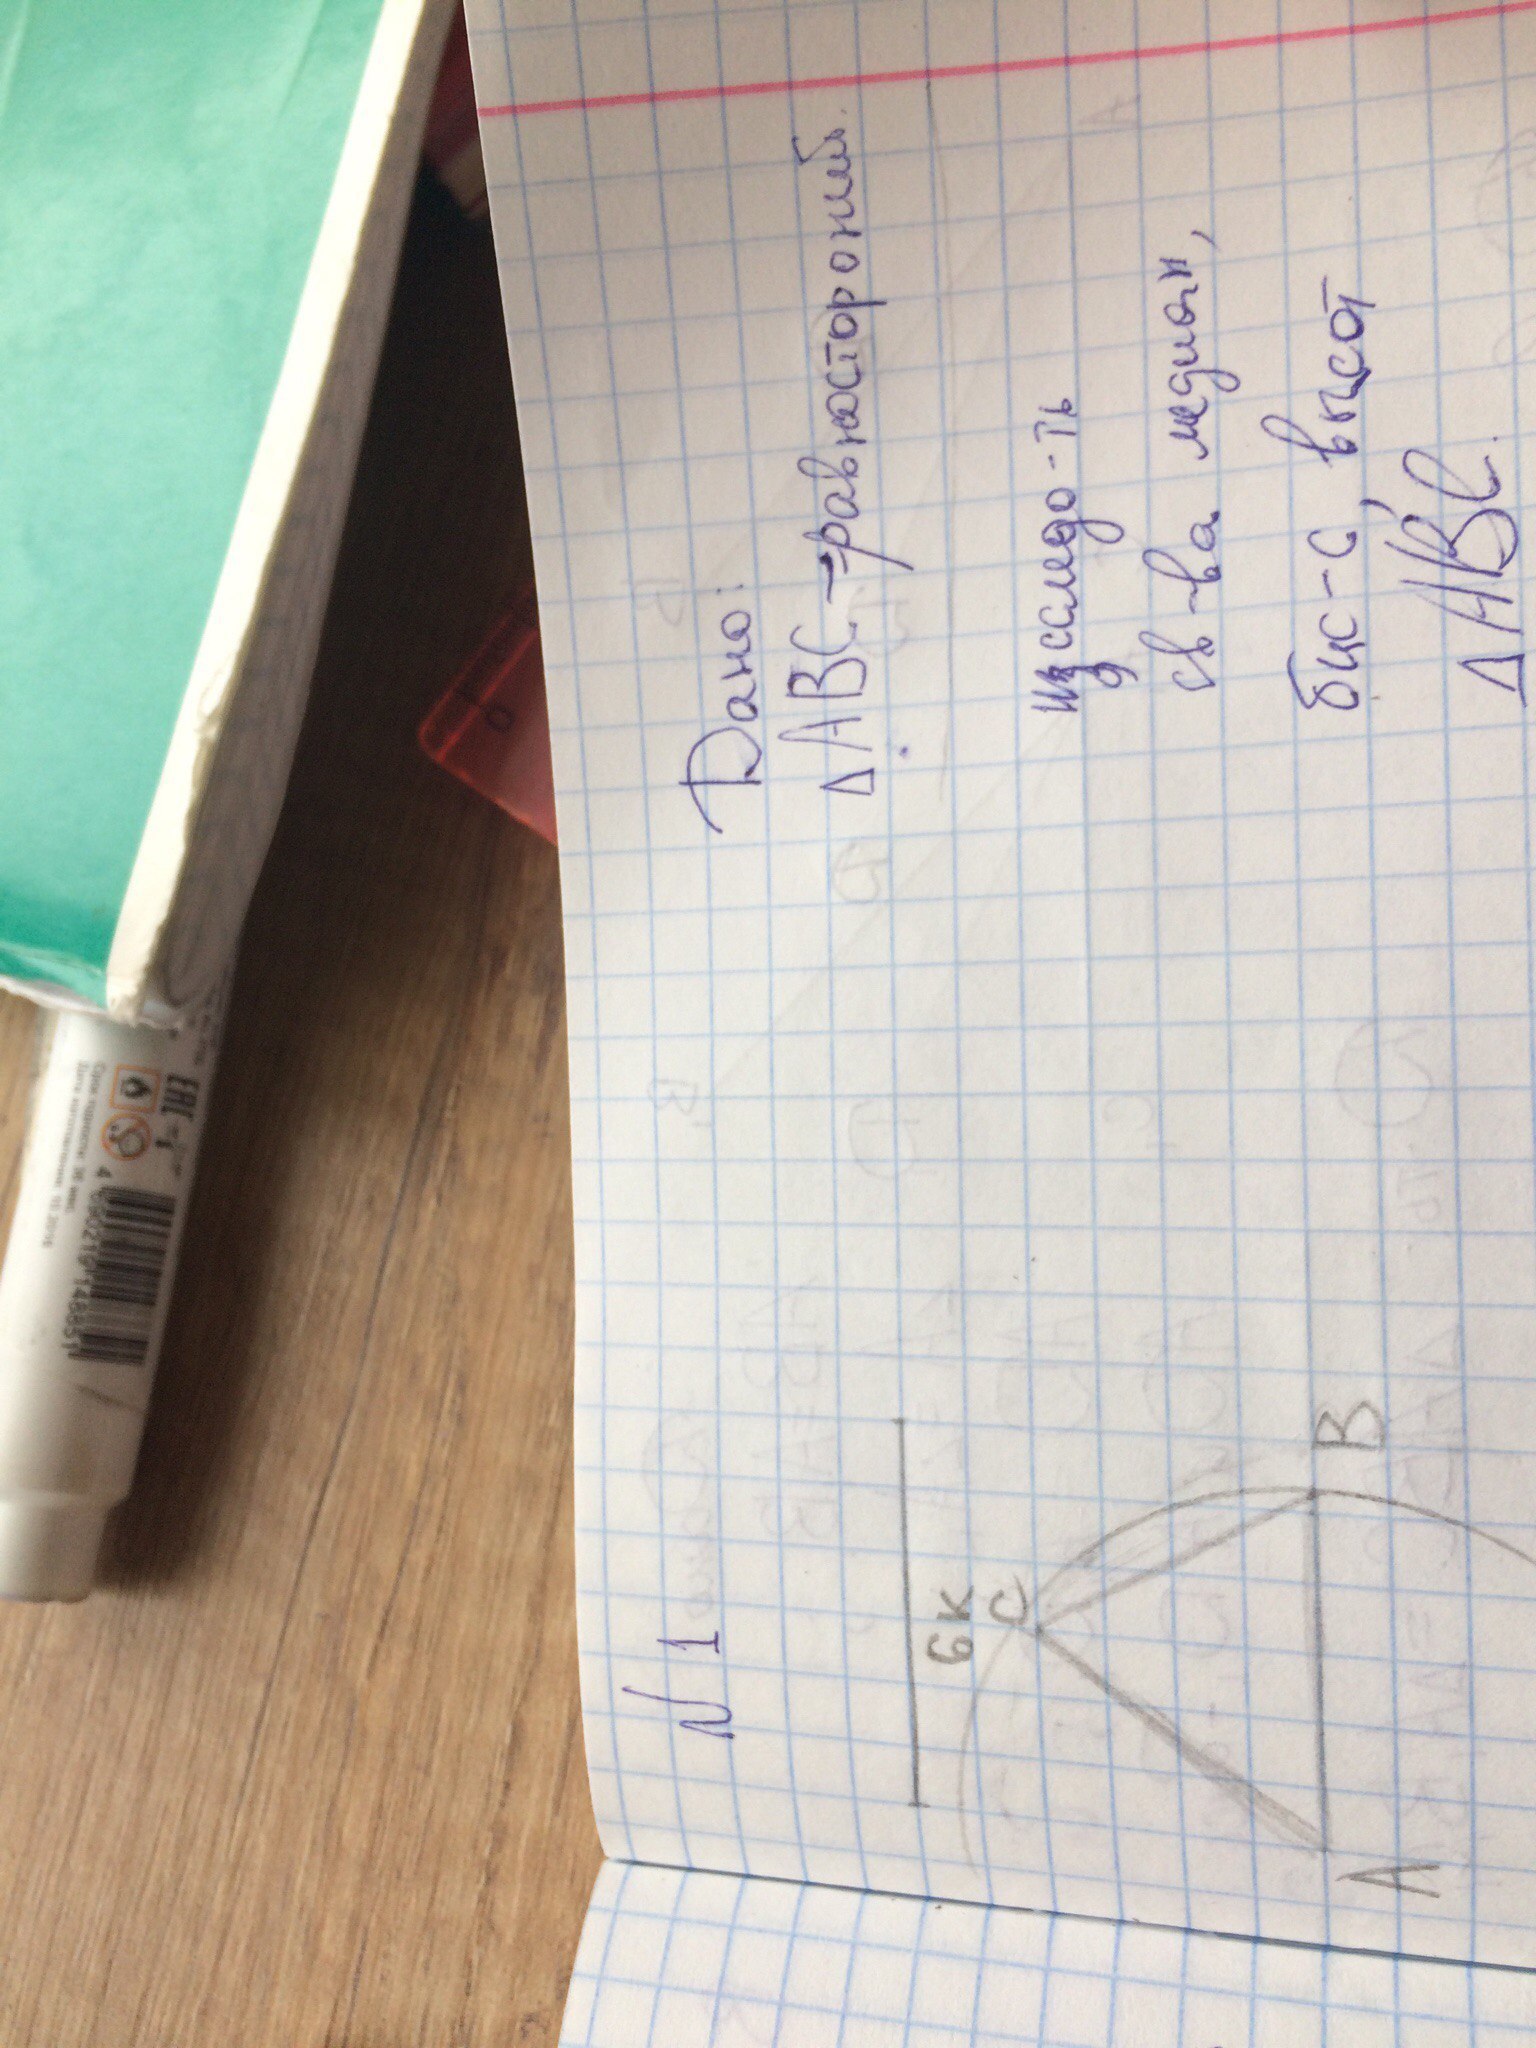 № 1
Дано:
ΔABC – равносторонний.
исследо-ть
св-ва медиан,
бис-с, высот
ΔABC.
6 к
C
A
B
0
EAC